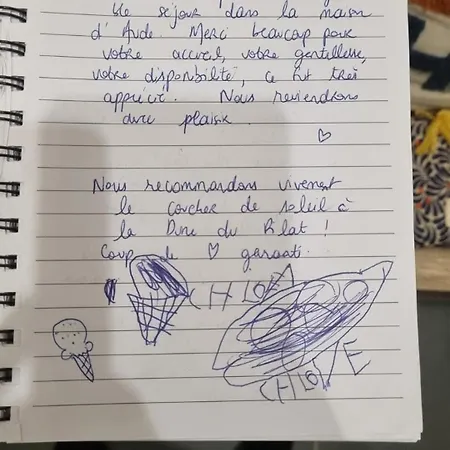 séjour dans la maison
d'Aude. Merci beaucoup pour
votre accueil, votre gentillesse,
votre disponibilité, ce fut très
apprécié. Nous reviendrons
avec plaisir.
Nous recommandons vivement
le coucher de soleil à
la Dune du Pilat !
Coup de ♡ garanti.
CHLOÉ
CHLOÉ